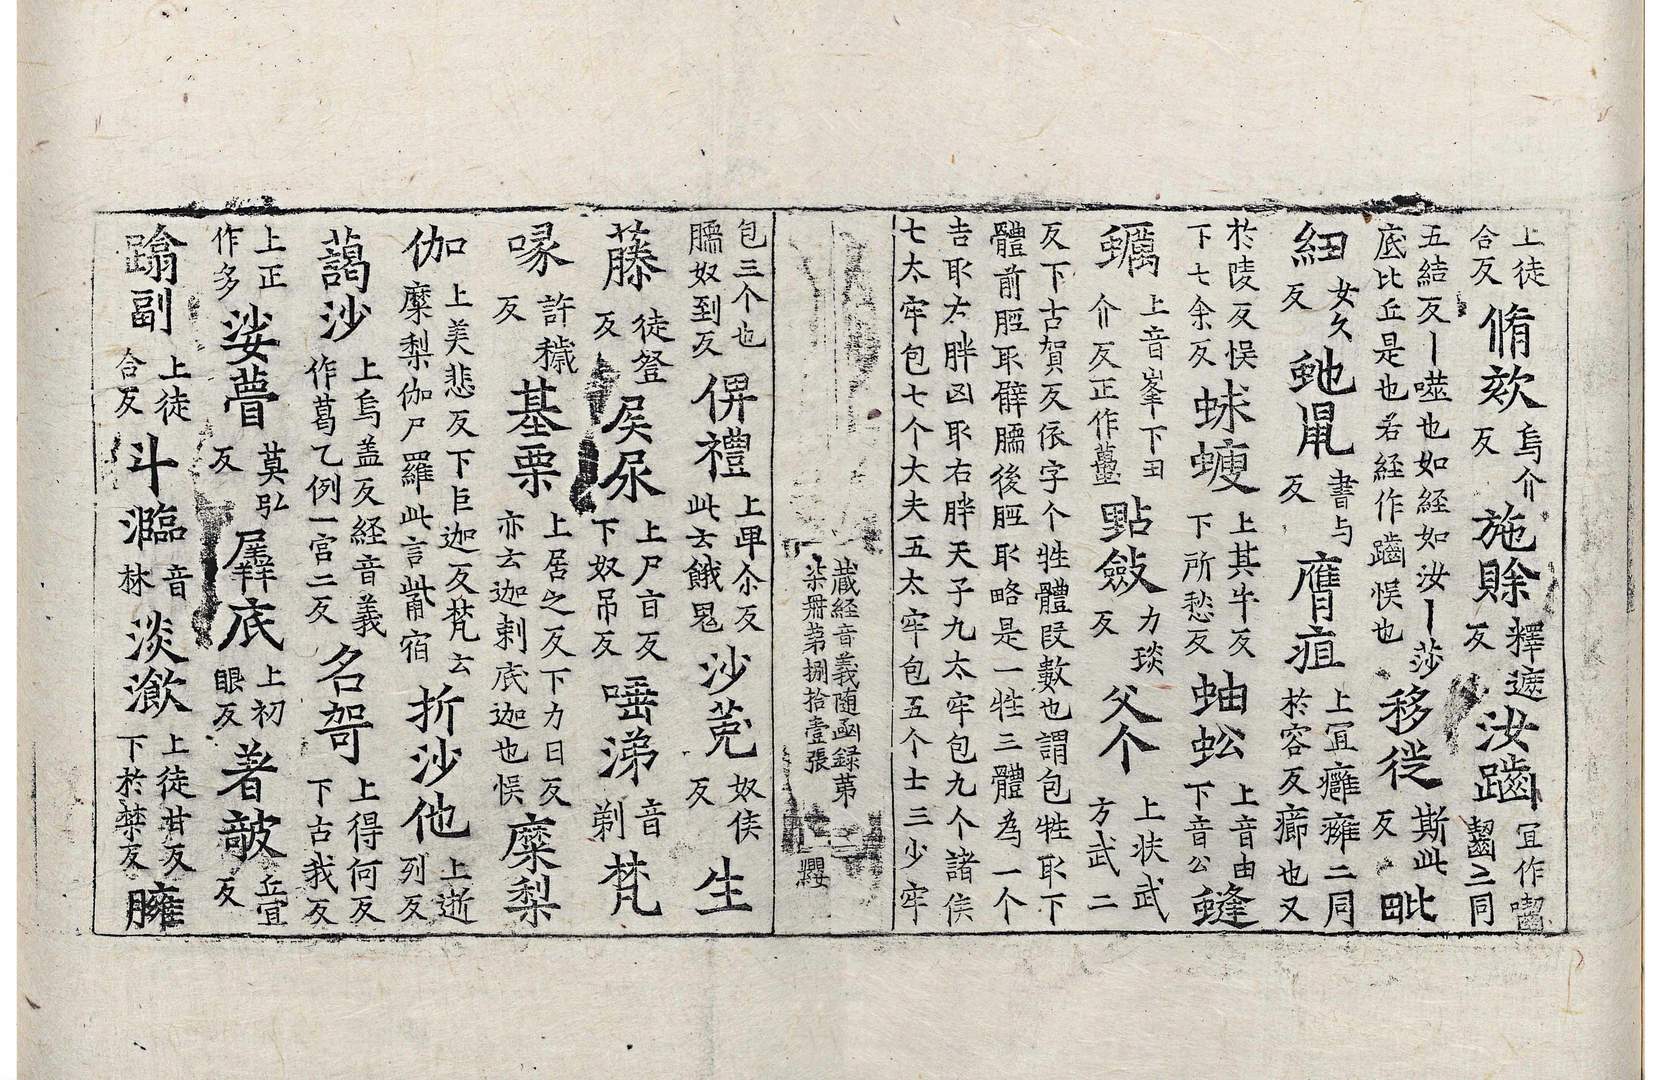 上徒合反脩欬烏介反施賖釋遮反汝𪘨冝作囓齧二同
五結反丨噬也如經如汝丨莎移従斯此反毗
底比丘是也若經作𪘨悮也
紐女久反虵鼡書与反𤸰疽上冝癰癕二同於容反癤也又
於陵反悮蛛螋上其牛反蚰蚣上音由蜂
下七余反下所愁反下音公
蠣上音峯下田介反正作蠆點斂力琰反父个上扶武二方武
反下古賀反依字个牲體叚數也謂包牲取下
體前脛取臂臑後脛取略是一牲三體為一个
吉取左胖凶取右胖天子九太牢包九个諸侯
七太牢包七个大夫五太牢包五个士三少牢
藏經音義随函録第柒冊第捌拾壹張 纓
包三个也臑奴到反俾禮上卑尒反此云餓鬼沙菟奴侯反生
藤徒登反屎尿上尸㫖反下奴吊反唾涕音剃梵
喙許穢反基栗上居之反下力日反亦云迦剌底迦也悮糜梨
伽上美悲反下巨迦反梵云糜梨伽尸羅此言觜宿折沙他上逝列反
藹沙上烏盖反經音義作葛乙例一宫二反名哿上得何反下古我反
上正作多娑瞢莫弘反羼底上初眼反著㱿丘冝反
蹹副上徒合反斗𤃡音林淡澉上徒甘反下於禁反臃